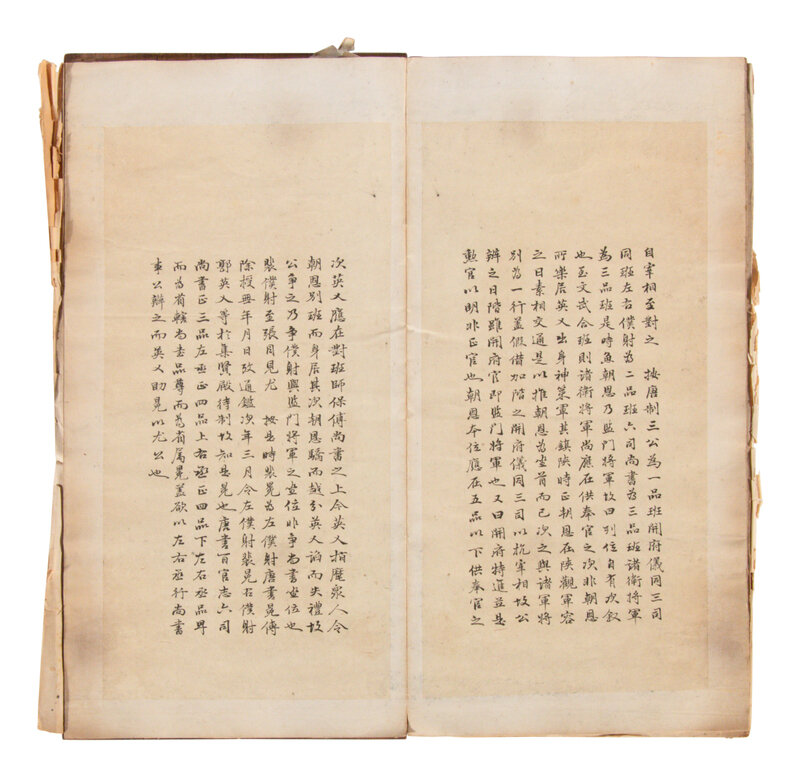 自宰相至對之　按唐制三公為一品班開府儀同三司
同班左右僕射為二品班六司尚書為三品班諸衛將軍
為三品班是時魚朝恩乃監門將軍故曰列位自有次敘
也至文武合班則諸衛將軍尚應在供奉官之次非朝恩
所樂居英乂出身神策軍其鎮陝時正朝恩在陝觀軍容
之日素相交通是以推朝恩為坐首而已次之與諸軍將
別為一行蓋假借加階之開府儀同三司以抗宰相故公
辨之曰階雖開府官即監門將軍也又曰開府特進並是
勳官以明非正官也朝恩本位應在五品以下供奉官之
次英乂應在對班師保傅尚書之上今英乂指麾眾人令
朝恩別班而身居其次朝恩驕而越分英乂諂而失禮故
公爭之乃爭僕射與監門將軍之坐位非爭尚書坐位也
裴僕射至張目見尤　按是時裴冕為左僕射唐書冕傳
除授無年月日攷通鑑次年三月令左僕射裴冕右僕射
郭英乂等於集賢殿待制故知是冕也唐書百官志六司
尚書正三品左丞正四品上右丞正四品下左右丞品卑
而為省轄尚書品尊而為省屬冕蓋欲以左右丞行尚書
事公辨之而英乂助冕以尤公也